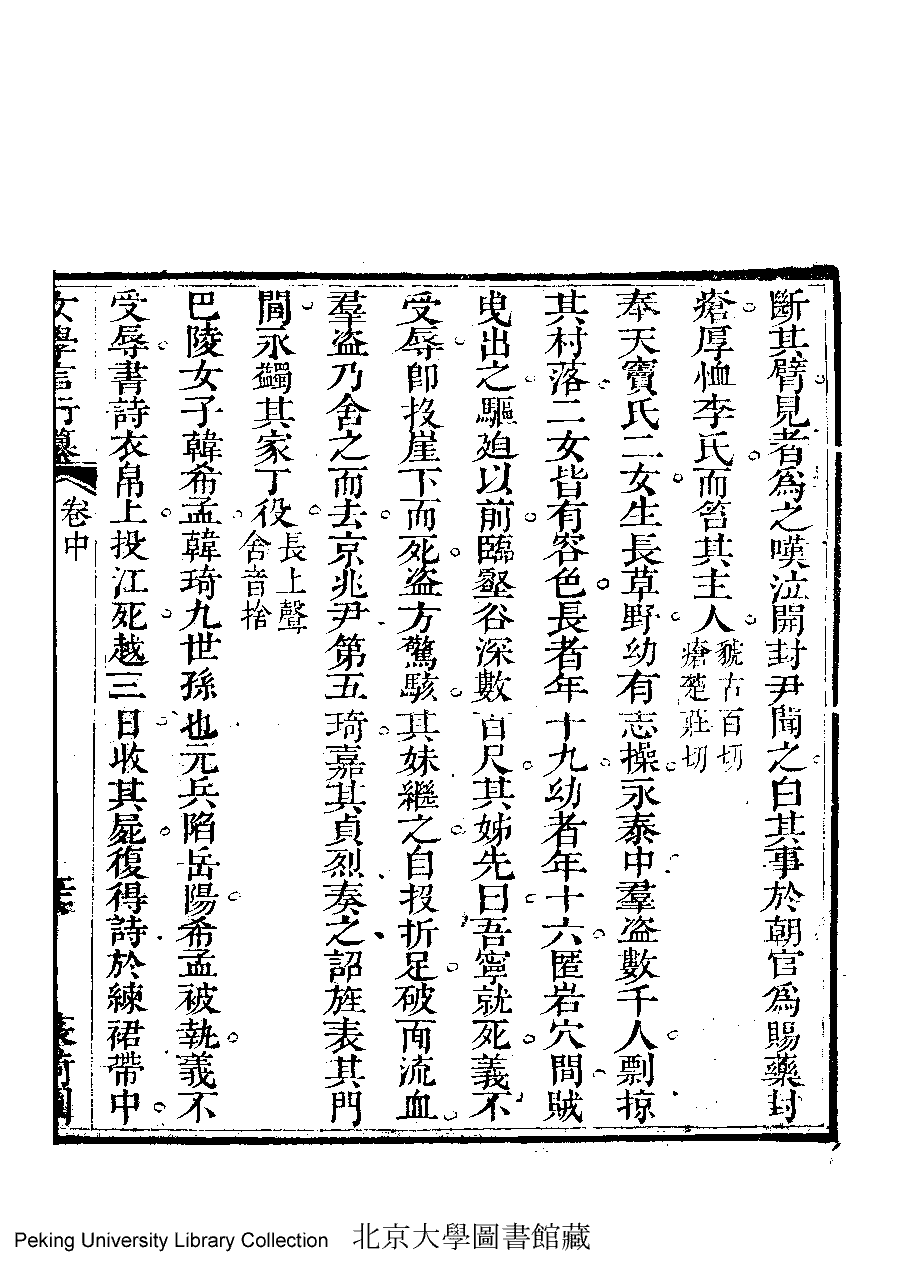 斷其臂見者爲之嘆泣開封尹聞之白其事於朝官爲賜藥封
瘡厚恤李氏而笞其主人虢古百切瘡楚莊切
奉天竇氏二女生長草野幼有志操永泰中羣盜數千人剽掠
其村落二女皆有容色長者年十九幼者年十六匿岩穴間賊
曵出之驅廹以前臨壑谷深數百尺其姊先曰吾寧就死義不
受辱卽投崖下而死盜方驚駭其妹繼之自投折足破面流血
羣盜乃舍之而去京兆尹第五琦嘉其貞烈奏之詔旌表其門
閭永蠲其家丁役長上聲舍音捨
巴陵女子韓希孟韓琦九世孫也元兵陷岳陽希孟被執義不
受辱書詩衣帛上投江死越三日收其屍復得詩於練裙帶中
女學言行纂
卷中
Peking University Library Collection 北京大學圖書館藏